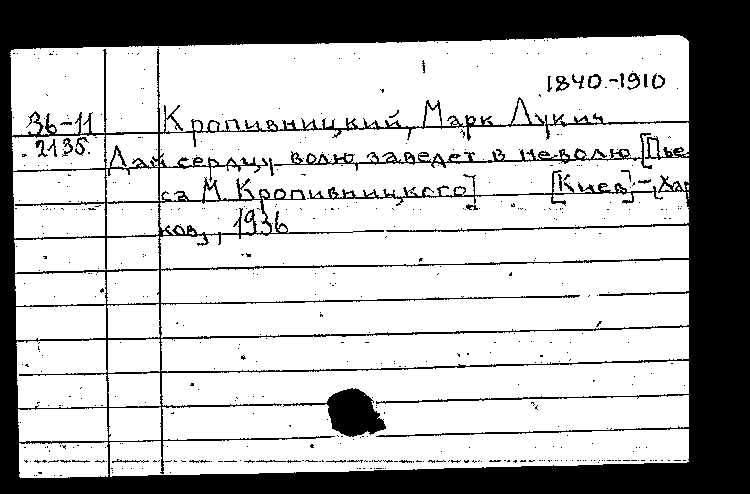 1840-1910
36-11 Кропивницкий, Марк Лукич
2135. Дай сердцу волю, заведет в неволю. [Пье-
са М. Кропивницкого] [Киев]-[Харь
ков], 1936